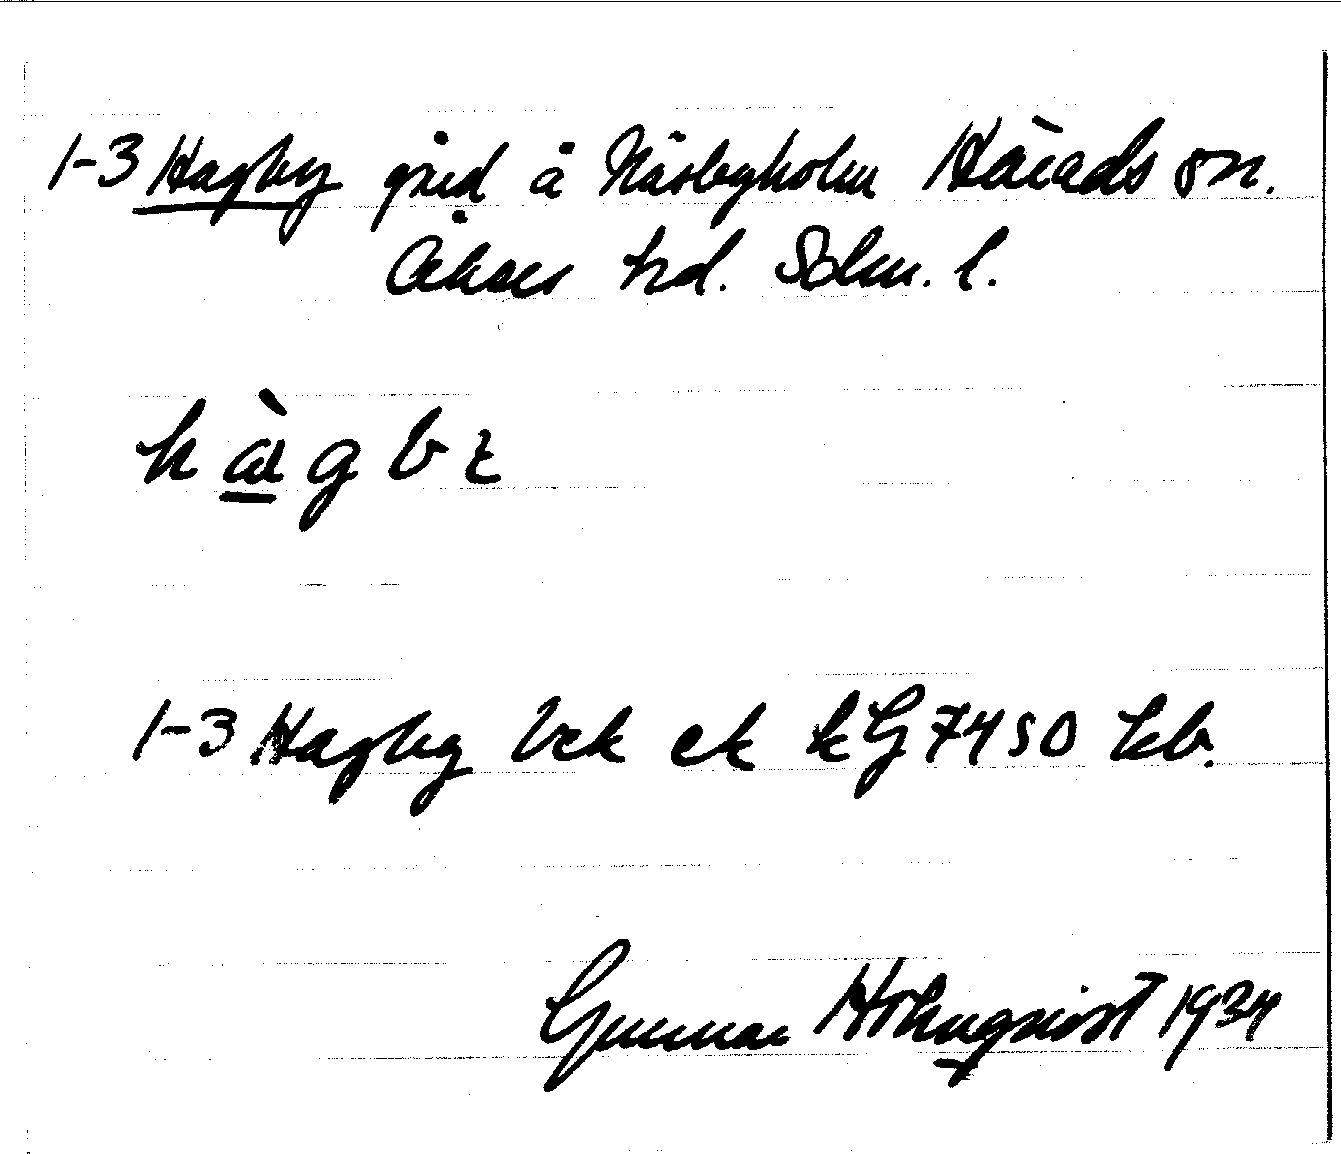 1-3 Hagby gård å Näsbyholm Härads sn.
Åkers hd. Sdm. l.
hàgbɩ
1-3 Hagby Eck ek kG 7450 kb.
Gunnar Holmqvist 1934